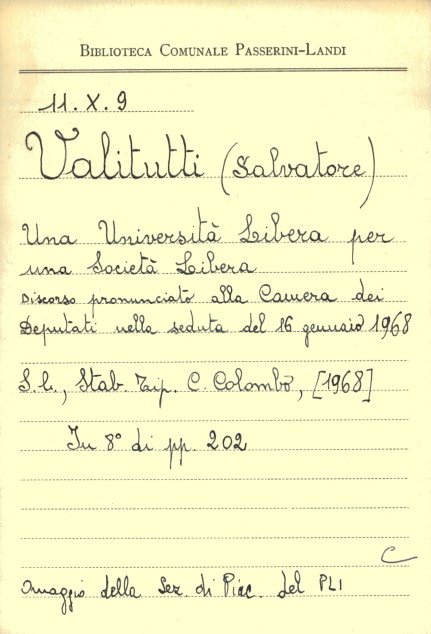 BIBLIOTECA COMUNALE PASSERINI-LANDI
11. X. 9
Valitutti (Salvatore)
Una Università Libera per
una Società Libera
Discorso pronunciato alla Camera dei
Deputati nella seduta del 16 gennaio 1968
S.l., Stab. Tip. C. Colombo, [1968]
In 8° di pp. 202
C
Omaggio della Sez. di Piac. del PLI